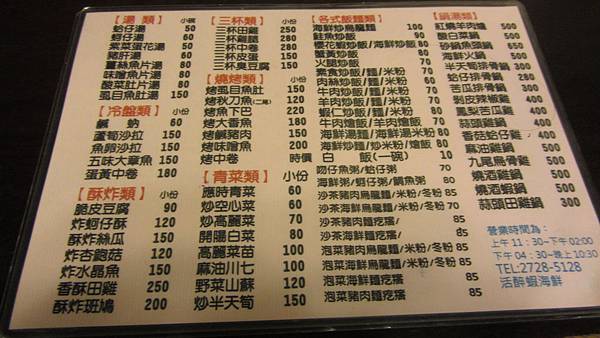 【湯類】小碗
蛤仔湯 50
蚵仔湯 50
紫菜蛋花湯 50
豬肝湯 60
薑絲魚片湯 80
味噌魚片湯 80
酸菜肚片湯 80
虱目魚肚湯 150
【冷盤類】小份
鹹 60
蘆筍沙拉 150
魚卵沙拉 150
五味大章魚 150
蛋黃中卷 180
【酥炸類】小份
脆皮豆腐 90
炸蚵仔酥 120
酥炸絲瓜 150
炸杏鮑菇 120
炸水晶魚 150
香酥田雞 250
酥炸斑鳩 200
【三杯類】小份
三杯田雞 250
三杯雞腿 280
三杯中卷 280
三杯皮蛋 150
三杯臭豆腐 150
【燒烤類】小份
烤虱目魚肚 150
烤秋刀魚(二尾) 150
烤魚下巴 220
烤大香魚 180
烤鹹豬肉 150
烤味噌魚 150
烤中卷 時價
【青菜類】小份
應時青菜 60
炒空心菜 60
炒高麗菜 70
開陽白菜 80
高麗菜苗 100
麻油川七 100
野菜山蘇 120
炒半天筍 150
【各式飯麵類】
海鮮炒烏龍麵 100
鮭魚炒飯 100
櫻花蝦炒飯/海鮮炒飯 80
蟹黃炒飯 60
火腿炒飯 60
素食炒飯/麵/米粉 60
牛肉炒飯/麵/米粉 60
羊肉炒飯/麵/米粉 60
蝦仁炒飯/麵/米粉 60
牛肉燴飯/羊肉燴飯 70
海鮮湯麵/湯米粉 80
海鮮炒麵/炒米粉/燴飯 80
白 飯(一碗) 10
吻仔魚粥/蛤仔粥 50
海鮮粥/蚵仔粥/鯛魚粥 50
沙茶豬肉烏龍麵/米粉/冬粉 85
沙茶海鮮烏龍麵/米粉/冬粉 85
沙茶豬肉麵疙瘩 85
沙茶海鮮麵疙瘩
泡菜豬肉烏龍麵/米粉/冬粉 85
泡菜海鮮烏龍麵/米粉/冬粉 85
泡菜豬肉麵疙瘩 85
泡菜海鮮麵疙瘩 85
【鍋湯類】
紅燒羊肉爐 500
酸白菜鍋 500
砂鍋魚頭鍋 500
海鮮火鍋 500
半天筍排骨鍋 300
蛤仔排骨鍋 300
苦瓜排骨鍋 300
剝皮辣椒雞 450
鳳梨苦瓜雞 400
蒜頭雞鍋 400
香菇蛤仔雞 400
麻油雞鍋 400
九尾烏骨雞 500
燒酒雞鍋 500
燒酒蝦鍋 500
蒜頭田雞鍋 300
營業時間為:
上午 11:30~下午 02:00
下午 04:30~晚上 10:30
TEL:2728-5128
活醉蝦海鮮